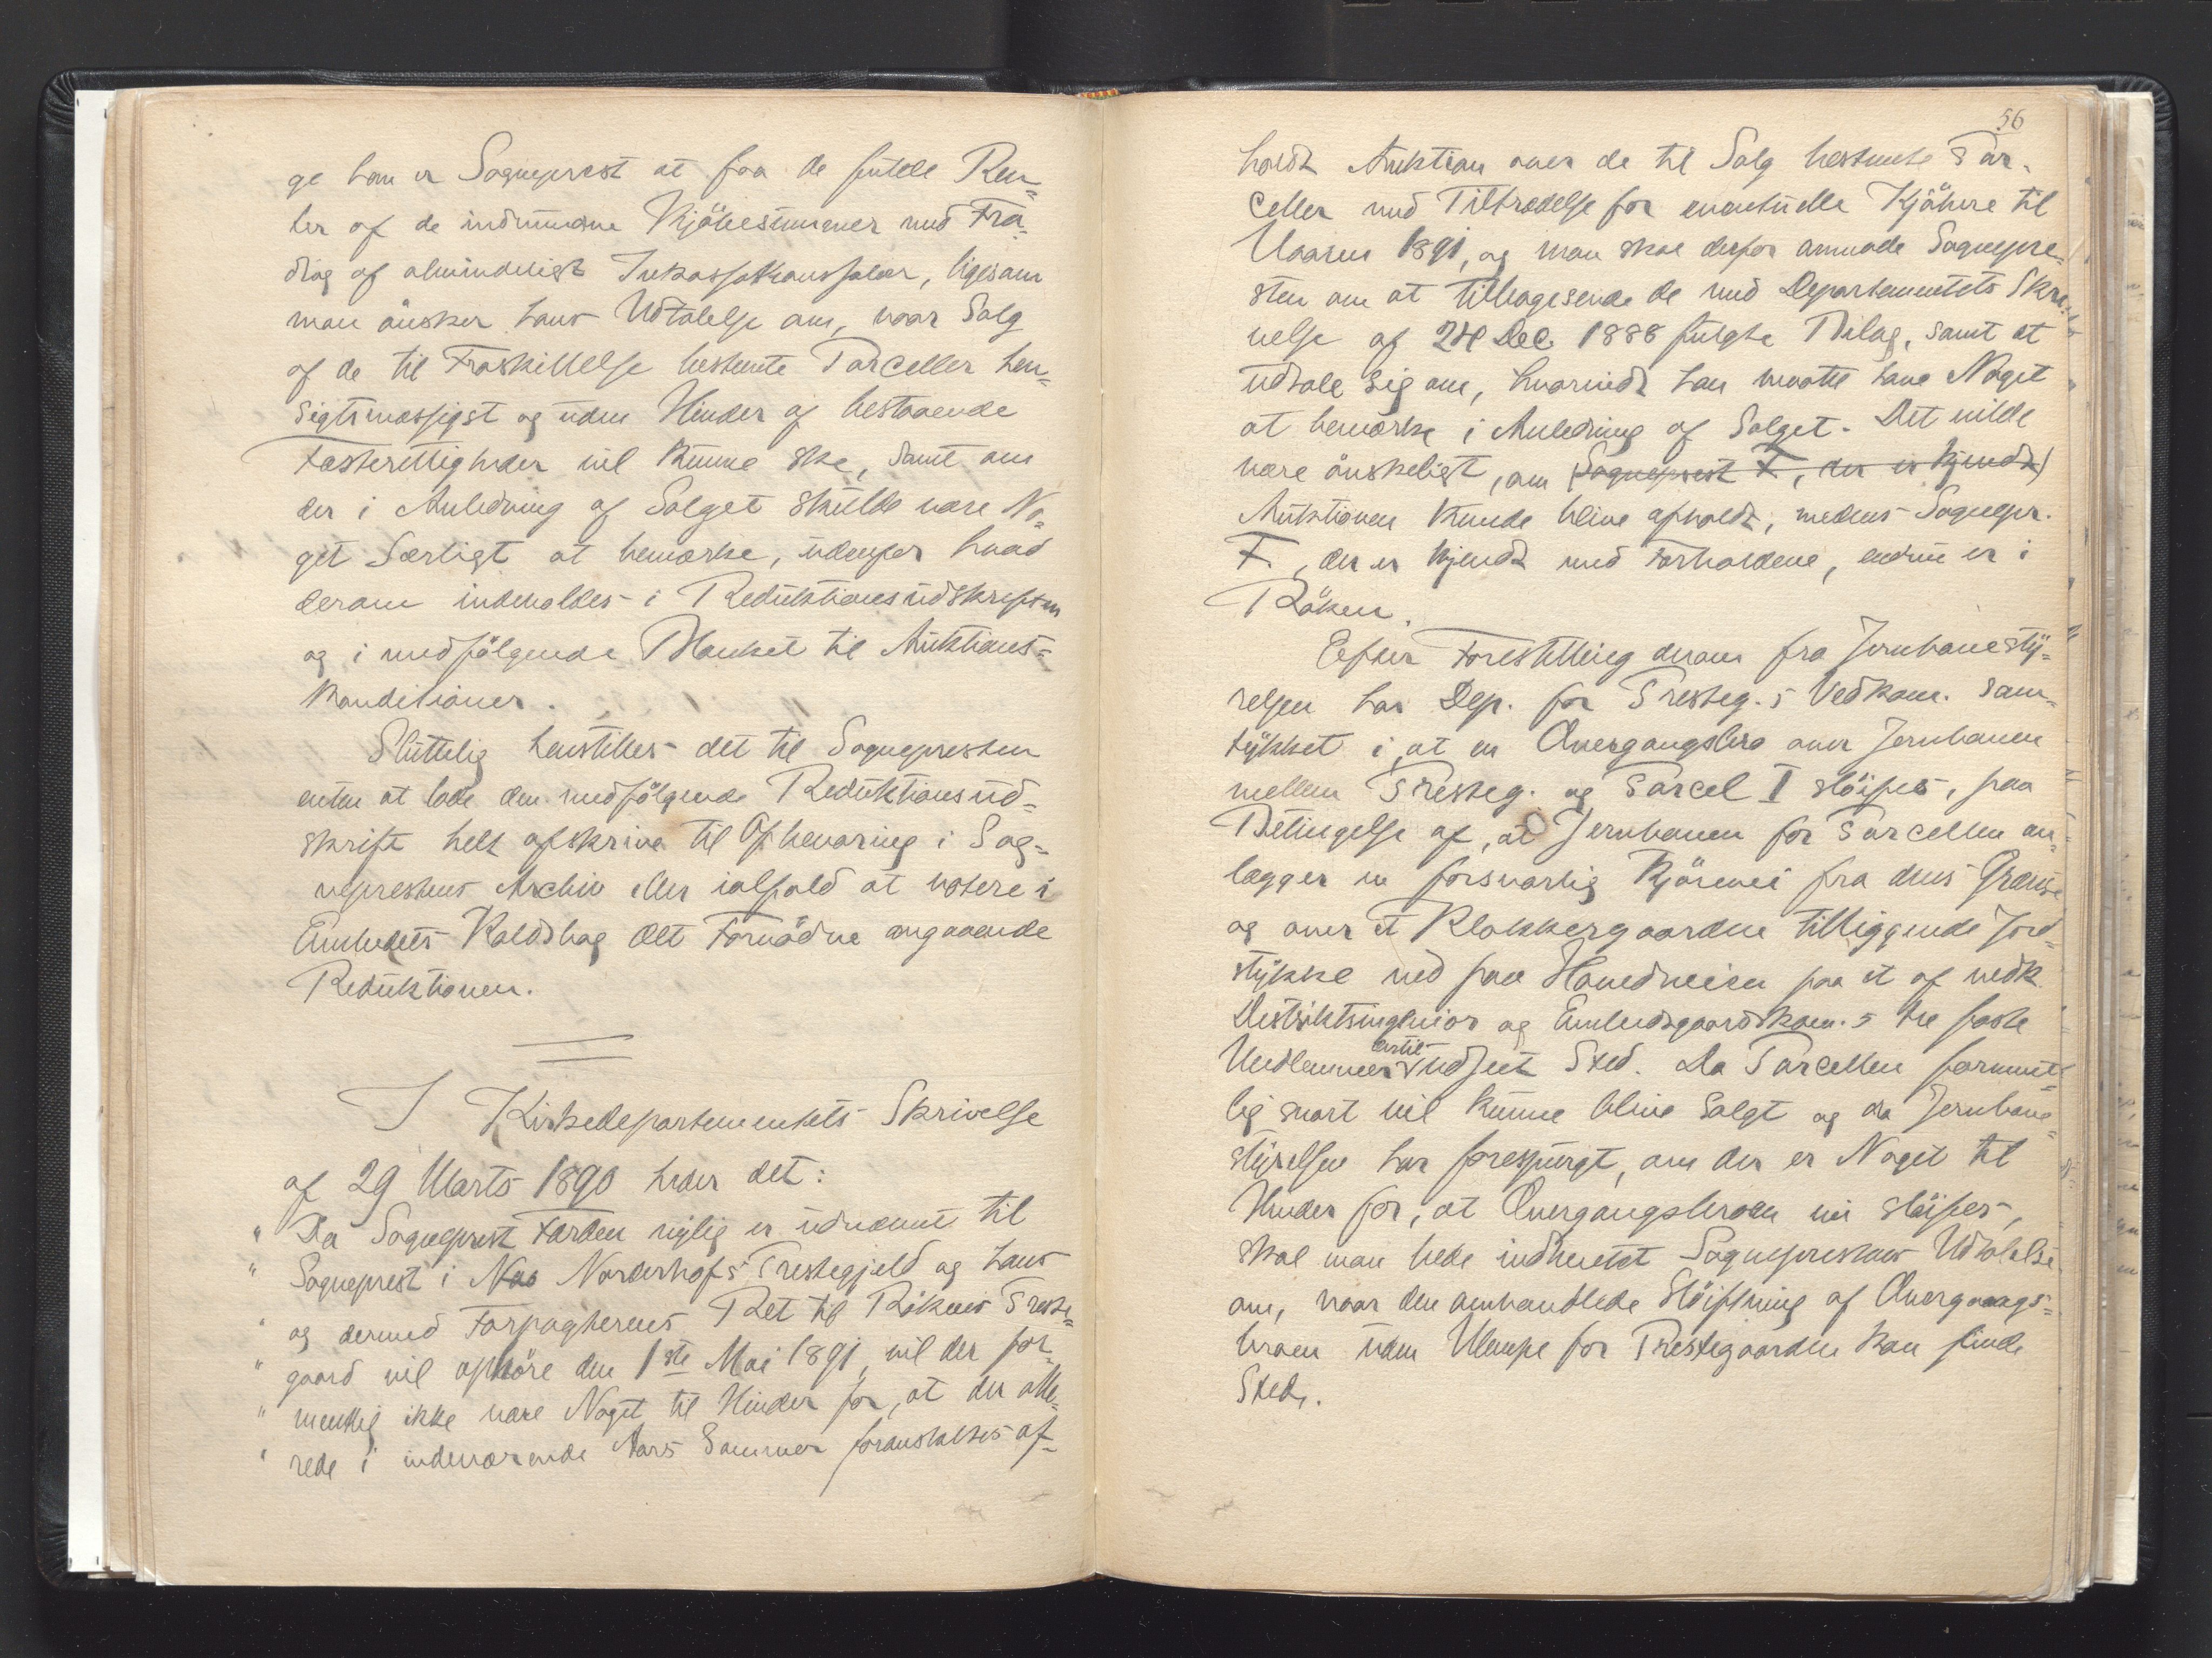 ge han er Sogneprest at faa de fulde Ren=
ter af de indvundne Kjöbesummer med Fra=
drag af almindeligt Inkassationssalær, ligesom
man önsker hans Udtalelse om, naar Salg
af de til Fraskillelse bestemte Parceller hen=
sigtsmæssigst og uden Hinder af bestaaende
Fæsterettigheder vil kunne ske, samt om
der i Anledning af Salget skulde være No=
get Særligt at bemærke, udenfor hvad
derom indeholdes i Reduktionsudskriften
og i medfölgende Blanket til Auktions=
konditioner.
Sluttelig henstilles det til Sognepresten
enten at lade den medfölgende Reduktionsud=
skrift helt afskrive til Opbevaring i Sog=
neprestens Archiv eller ialfald at notere i
Embedets Kaldsbog Alt Fornödne angaaende
Reduktionen.
I Kirkedepartementets Skrivelse
af 29 Marts 1890 heder det:
" Da Sogneprest Farden nylig er udnævnt til
" Sogneprest i Nao Norderhofs Prestegjeld og hans
" og dermed Forpagterens Ret til Rökens Preste=
" gaard vil ophöre den 1ste Mai 1891, vil der for=
" mentlig ikke være Noget til Hinder for, at der alle=
" rede i indeværende Aars Sommer foranstaltes af=
56
holdt Auktion over de til Salg bestemte Par=
celler med Tiltrædelse for eventuelle Kjöbere til
Vaaren 1891, og man skal derfor anmode Sognepre=
sten om at tilbagesende de med Departementets Skri=
velse af 24 Dec. 1888 fulgte Bilag, samt at
udtale sig om, hvorvidt han maatte have Noget
at bemærke i Anledning af Salget. Det vilde
være önskeligt, om (Sogneprest F, der er kjendt)
Auktionen kunde blive afholdt, medens Sognepr.
F, der er kjendt med Forholdene, endnu er i
Röken.
Efter Forestilling derom fra Jernbanesty=
relsen har Dep. for Presteg.s Vedkom. sam=
tykket i, at en Overgangsbro over Jernbanen
mellem Presteg. og Parcel I slöifes, paa
Betingelse af, at Jernbanen for Parcellen an=
lægger en forsvarlig Kjörevei fra dens Grændse
og over et Klokkergaarden tilliggende Jord=
stykke ned paa Hovedveien paa et af vedk.
Distriktsingeniör og Embedsgaardskom.s tre faste
Medlemmer dertil udseet Sted. Da Parcellen forment=
lig snart vil kunne blive solgt og da Jernbane=
styrelsen har forespurgt, om der er Noget til
Hinder for, at Overgangsbroen nu slöifes,
skal man bede indhentet Sogneprestens Udtalelse
om, naar den omhandlede Slöifning af Overgangs=
broen uden Ulempe for Prestegaarden kan finde
Sted.